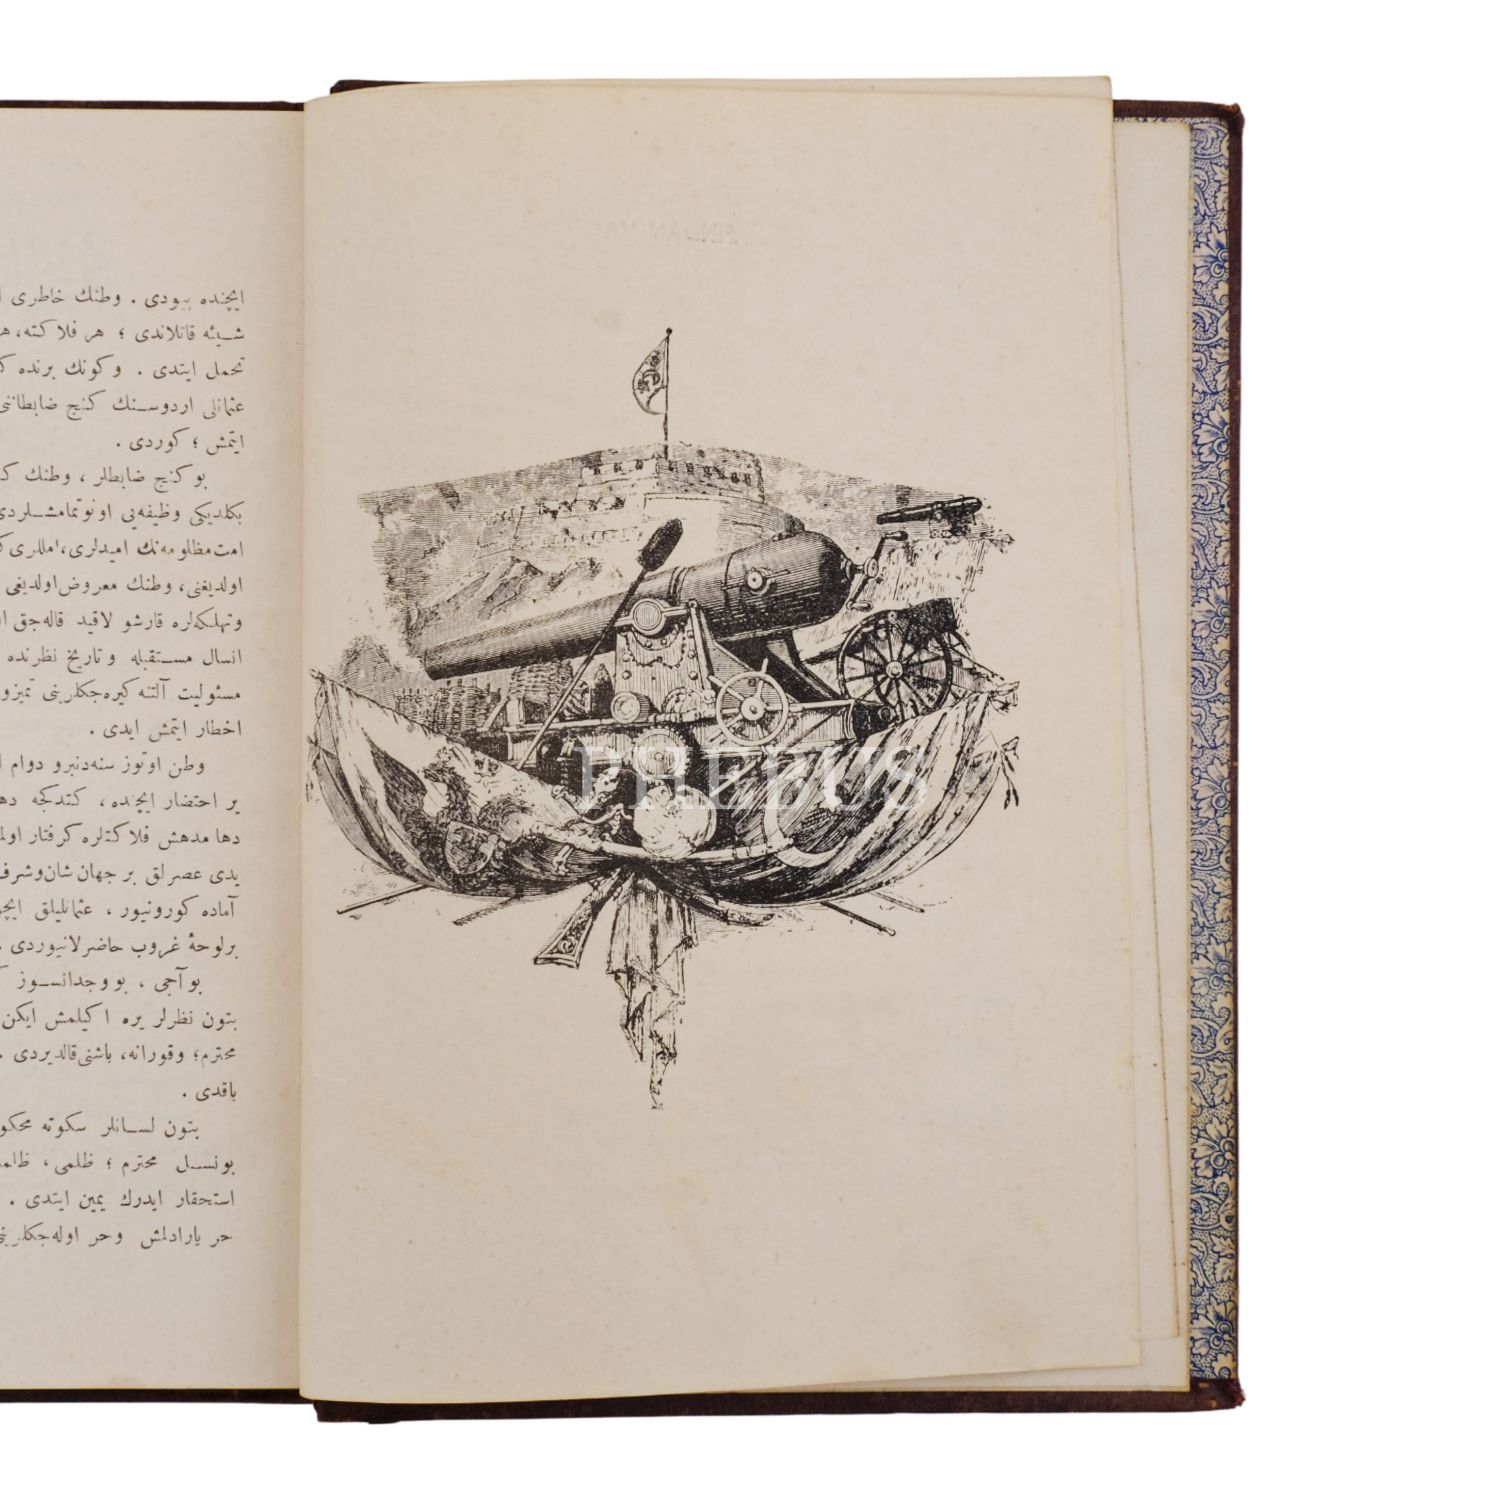 ایچنده بیودی . وطنك خاطری
شیئه قاتلاندی ؛ هر فلاكته، هـ
تحمل ایتدی . وكونك برنده كـ
عثمانلی اردوسنك كنج ضابطانی
ایتمش ؛ كوردی .
بو كنج ضابطلر ، وطنك كـ
بكلدیكی وظیفه‌یی اونوتمامشلردی
امت مظلومه‌نك امیدلری، املاری
اولدیغنی، وطنك معروض اولدیغی
وتهلكه‌لره قارشو لاقید قاله‌جق
انسال مستقبله وتاریخ نظرنده
مسئولیت آلتنه كیره‌جكلرینی تمیز و
اخطار ایتمش ایدی .
وطن اوتوز سنه‌دنبرو دوام
بر احتضار ایچنده ، كتدكجه دها
دها مدهش فلاكتلره كرفتار اولمـ
یدی عصرلق بر جهان شان‌وشرف
آماده كورونیور ، عثمانلیلق ایچو
برلوحهٔ غروب حاضرلانیوردی .
بو آجی ، بو وجدانسوز
بتون نظرلر یره اكیلمش ایكن
محترم؛ وقورانه، باشنی قالدیردی .
باقدی .
بتون لسانلر سكوته محكو
بونسل محترم ؛ ظلمی ، ظالمـ
استحقار ایدرك یمین ایتدی .
حر یارادلمش وحر اوله‌جكلرینی
PHEBUS